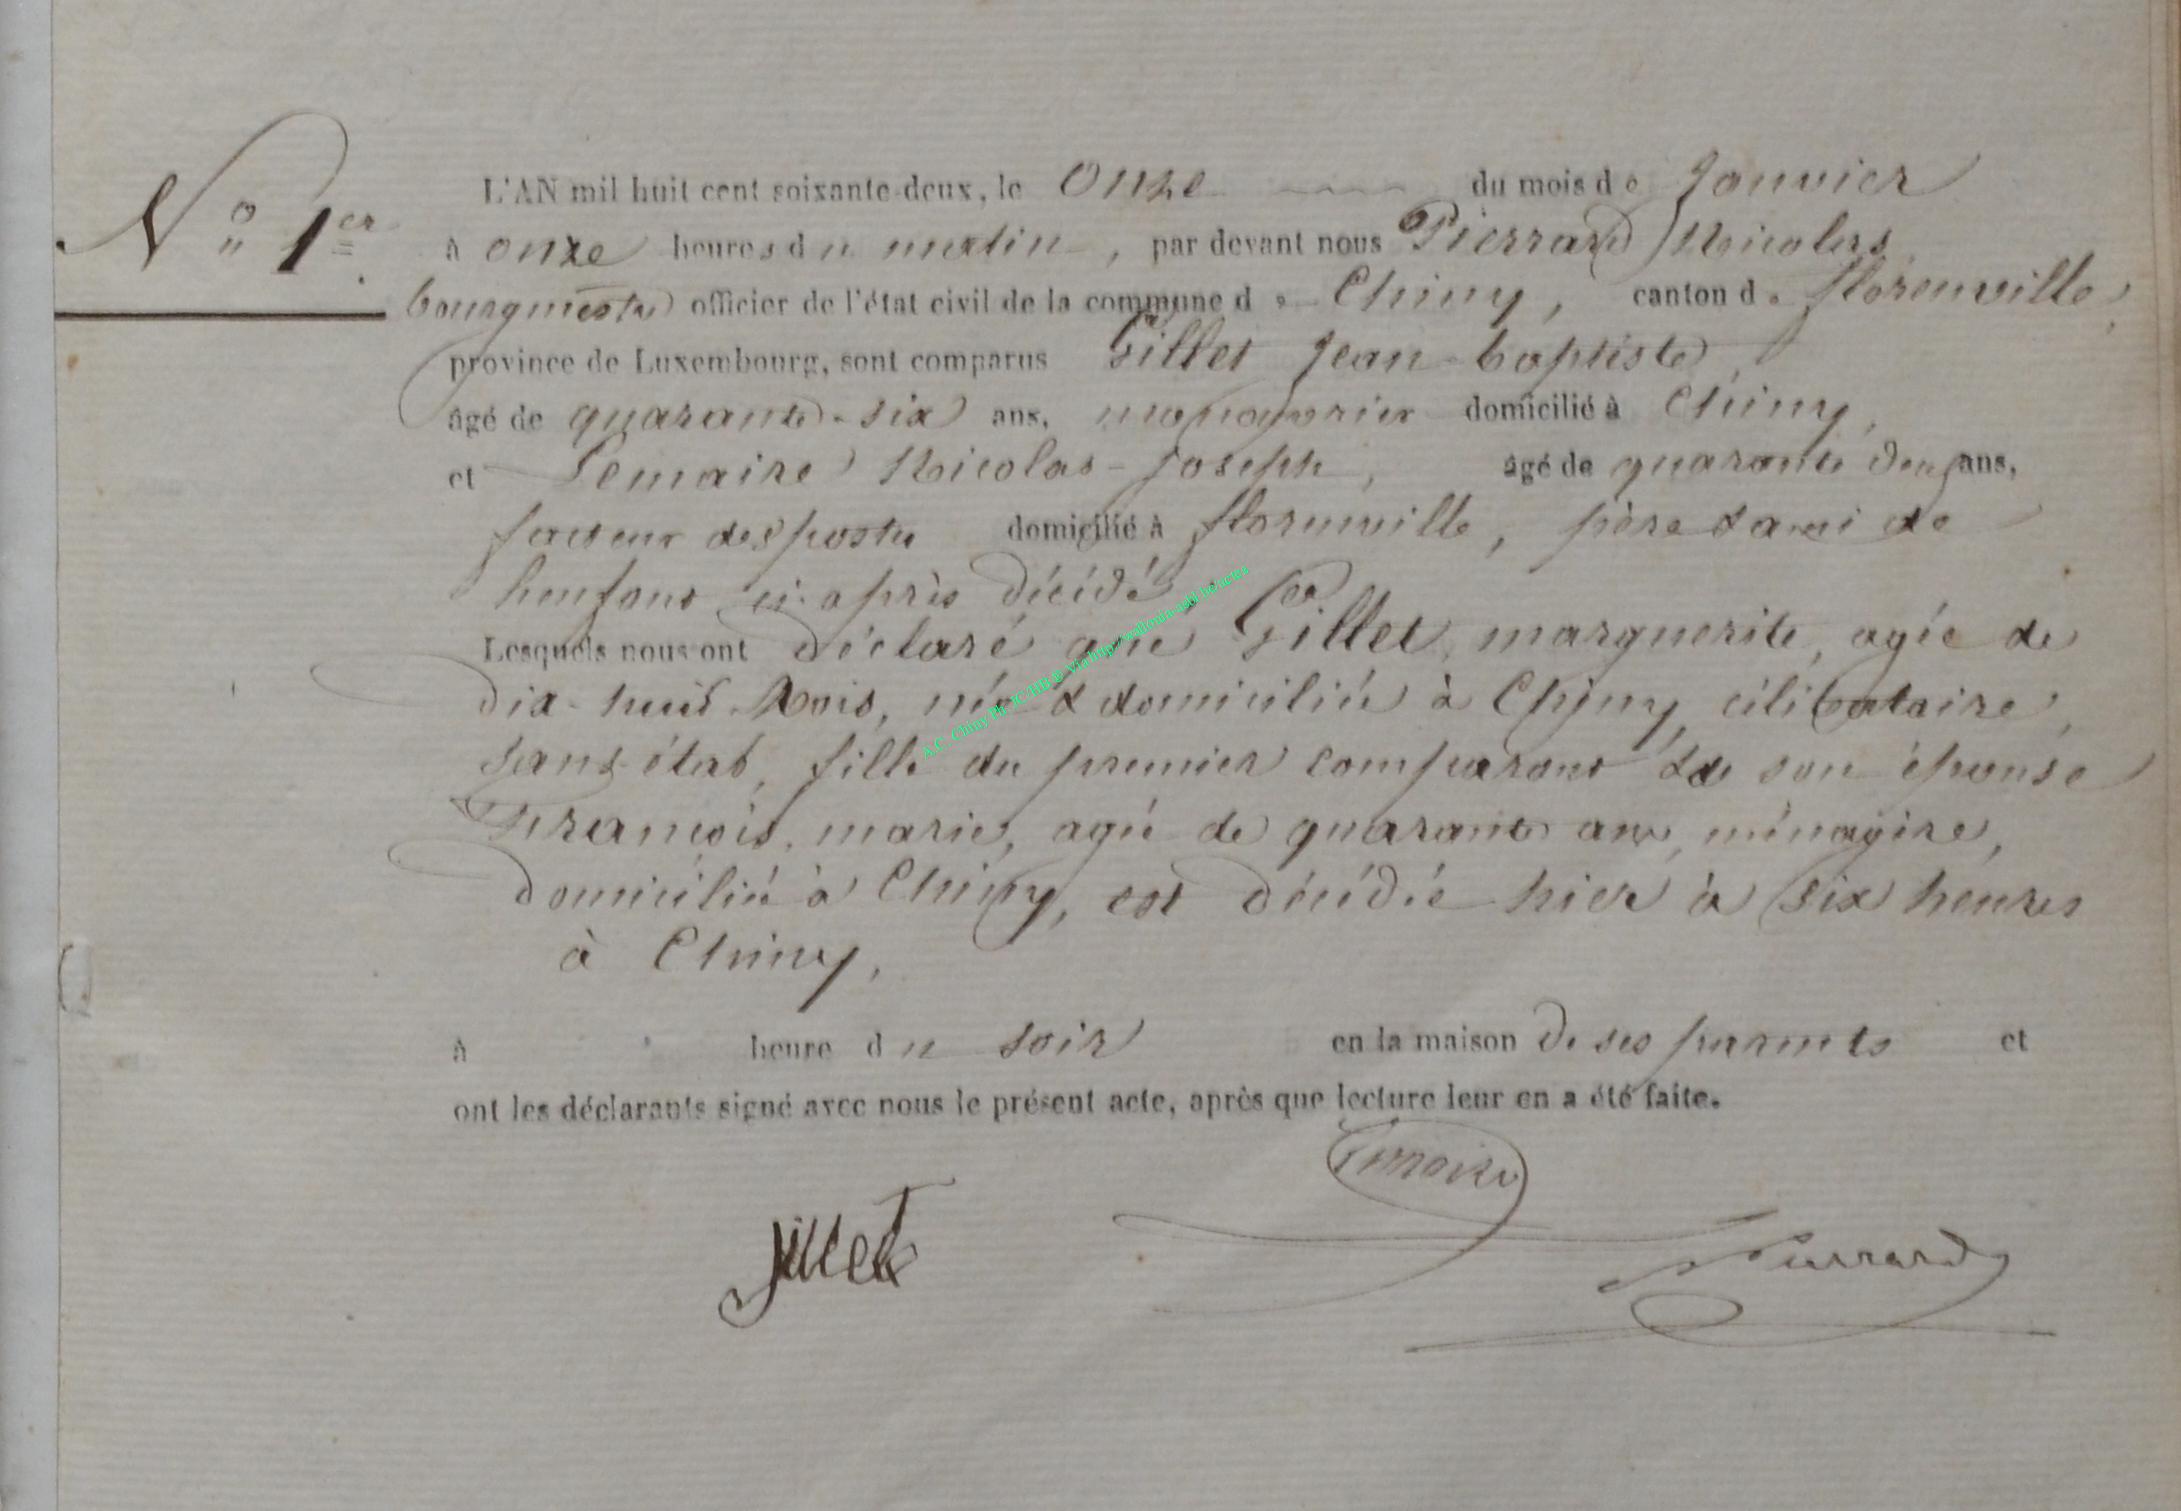 N° 1er
L'AN mil huit cent soixante-deux, le onze du mois de Janvier
à onze heures du matin, par devant nous Pierrard Nicolas,
bourgmestre officier de l'état civil de la commune de Chiny, canton de florenville,
province de Luxembourg, sont comparus Gillet Jean-baptiste,
âgé de quarante-six ans, manouvrier domicilié à Chiny,
et Lemaire Nicolas-Joseph, âgé de quarante deux ans,
facteur des postes domicilié à florenville, père & ami de
l'enfant ci-après décédé.
Lesquels nous ont déclaré que Gillet, marguerite, agée de
dix-huit Mois, née & domiciliée à Chiny, célibataire,
sans état, fille du premier comparant & de son épouse
François, marie, agée de quarante ans, ménagère,
domiciliée à Chiny, est décédée hier à six heures
à Chiny,
à heure du soir en la maison de ses parents et
ont les déclarants signé avec nous le présent acte, après que lecture leur en a été faite.
Lemaire
Gillet
Pierrard